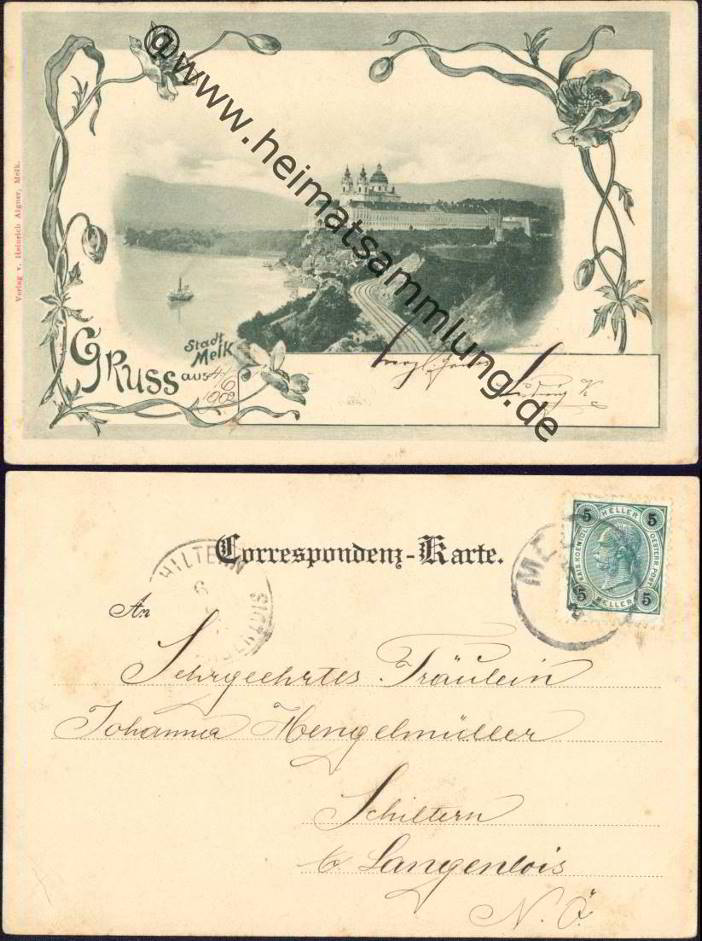 @www.heimatsammlung.de
Verlag v. Heinrich Aigner, Melk.
Gruss aus
Stadt
Melk
6
1902
Correspondenz-Karte.
HILTERN
6
5 HELLER 5
5 HELLER 5
An
Sehrgeehrtes Fräulein
Johanna Hengelmüller
Schiltern
b. Langenlois
N. Ö.